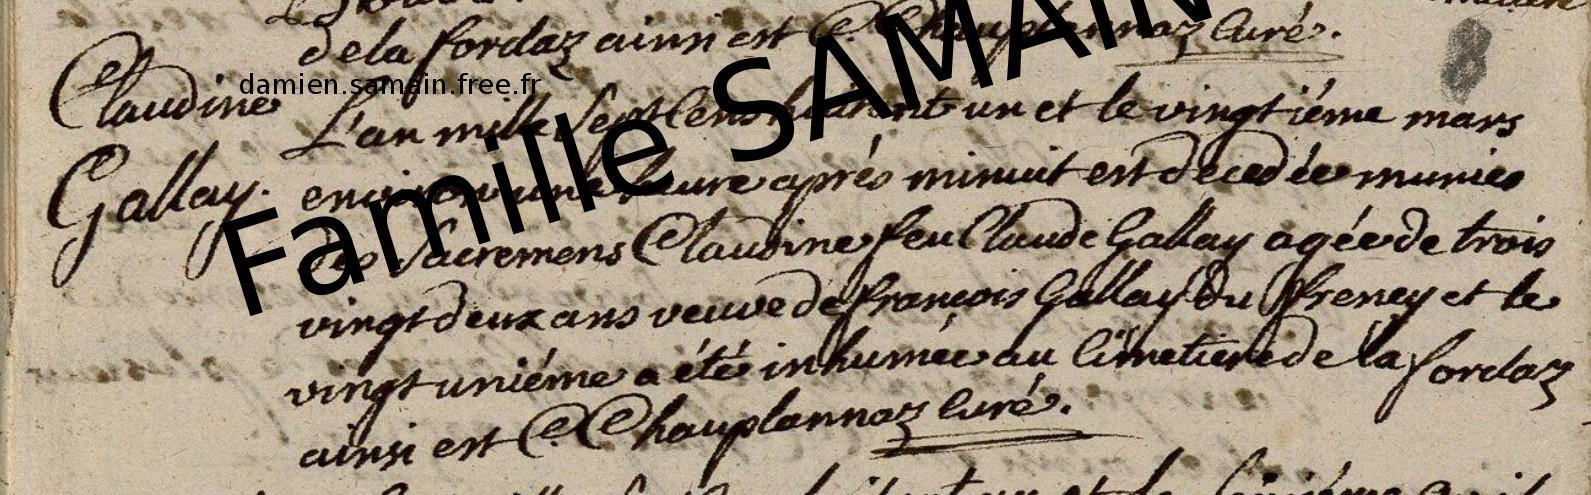 de la fordaz ainsi est C. Chauplannaz Curé.
Claudine
Gallay.
L'an mille Sept Cens huitant un et le vingtiéme mars
environ une heure aprés minuit est decedée munies
des Sacremens Claudine feu Claude Gallay agée de trois
vingt deux ans veuve de françois Gallay du freney et le
vingt uniéme a été inhumée au Cimetiere de la fordaz
ainsi est C. Chauplannaz Curé.
damien.samain.free.fr
Famille SAMAIN